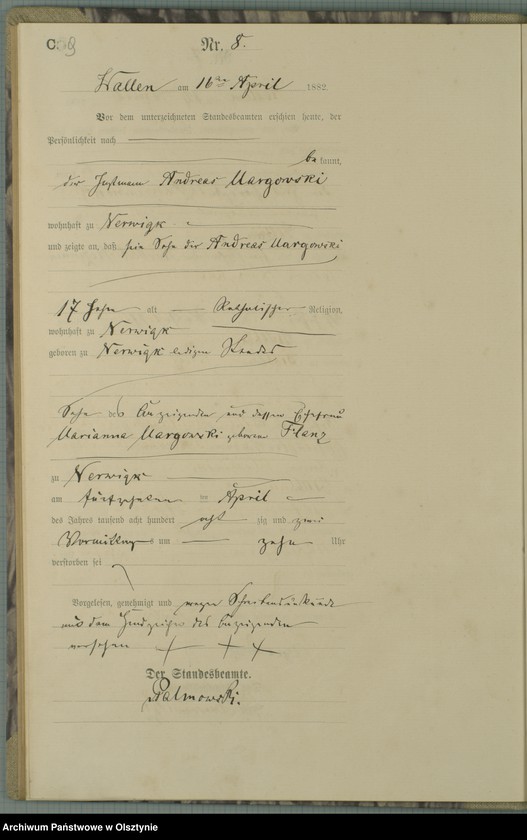 C
Nr. 8.
Wallen am 16ten April 1882.
Vor dem unterzeichneten Standesbeamten erschien heute, der
Persönlichkeit nach
bekannt,
der Instmann Andreas Margowski
wohnhaft zu Nerwigk
und zeigte an, daß sein Sohn der Andreas Margowski
17 Jahre alt Katholischer Religion,
wohnhaft zu Nerwigk
geboren zu Nerwigk ledigen Standes
Sohn des Anzeigenden und dessen Ehefrau
Marianna Margowski geborene
zu Nerwigk
am fünfzehnten April
des Jahres tausend acht hundert achtzig und zwei
Vormittags um zehn Uhr
verstorben sei
Vorgelesen, genehmigt und wegen Schreibensunkunde
mit dem Handzeichen des Anzeigenden
versehen + + +
Der Standesbeamte.
Palmowski.
Archiwum Państwowe w Olsztynie